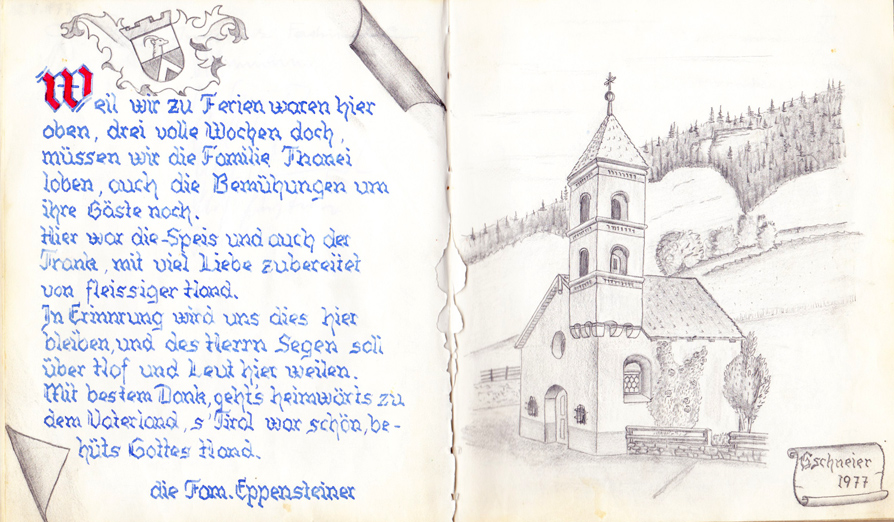 Weil wir zu Ferien waren hier
oben, drei volle Wochen doch,
müssen wir die Familie Thanei
loben, auch die Bemühungen um
ihre Gäste noch.
Hier war die-Speis und auch der
Trank, mit viel Liebe zubereitet
von fleissiger Hand.
In Erinnrung wird uns dies hier
bleiben, und des Herrn Segen soll
über Hof und Leut hier weilen.
Mit bestem Dank, geht's heimwärts zu
dem Vaterland, s' Tirol war schön, be-
hüts Gottes Hand.
die Fam. Eppensteiner
Gschneier
1977